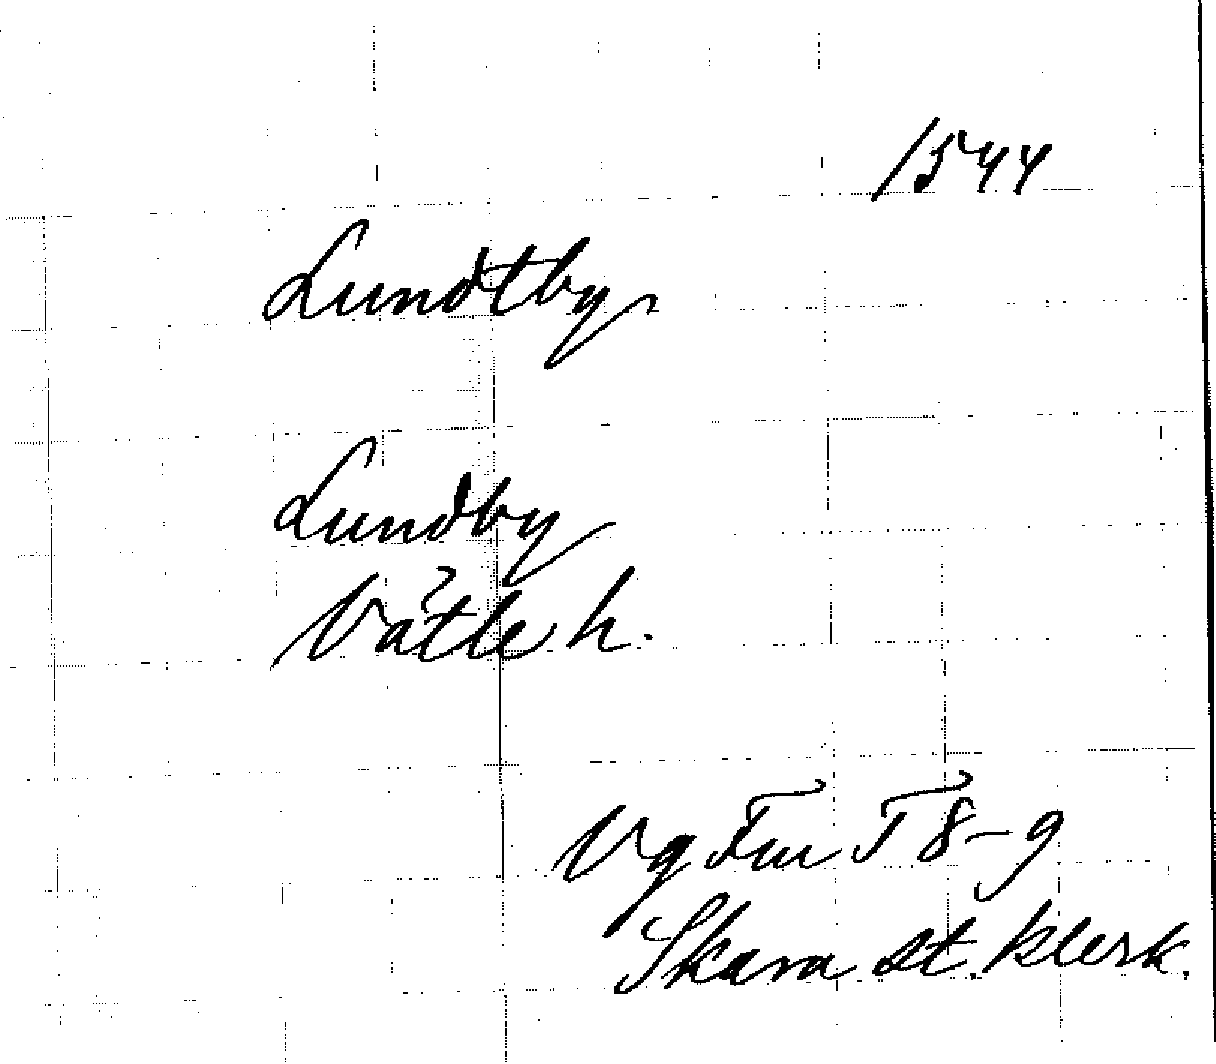 1544
Lundtby
Lundby
Vätle h.
Vg Fm I 8-9
Skara st. klerk.